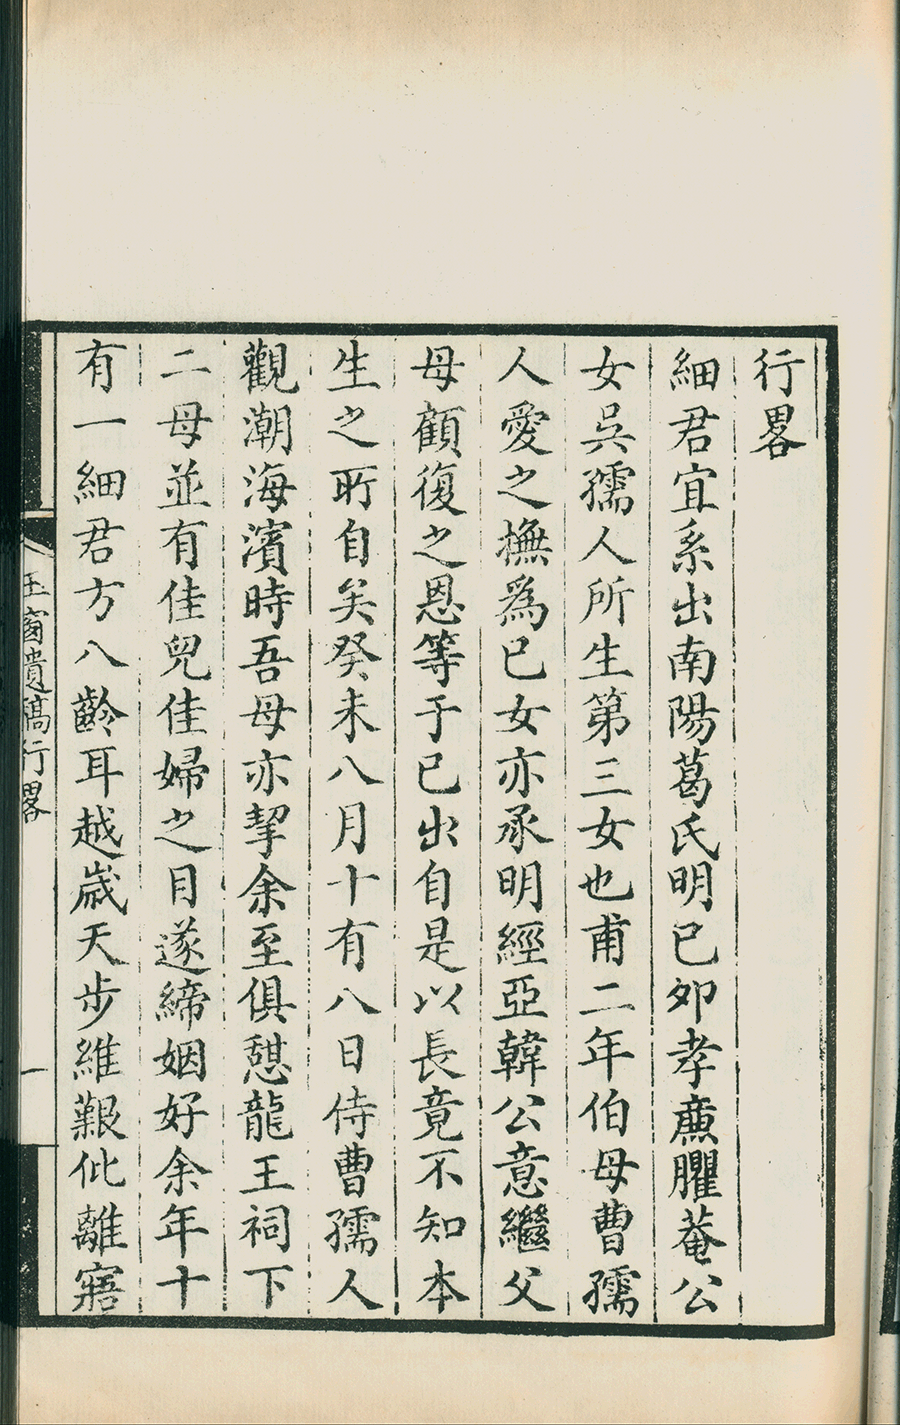 行畧
細君宜系出南陽葛氏明已夘孝亷臞菴公
女吳孺人所生第三女也甫二年伯母曹孺
人愛之撫爲已女亦承明經亞韓公意繼父
母顧復之恩等于已出自是以長竟不知本
生之所自矣癸未八月十有八日侍曹孺人
觀潮海濱時吾母亦挈余至俱憇龍王祠下
二母並有佳兒佳婦之目遂締姻好余年十
有一細君方八齡耳越歲天步維艱仳離寤
玉窗遺稿行畧 一